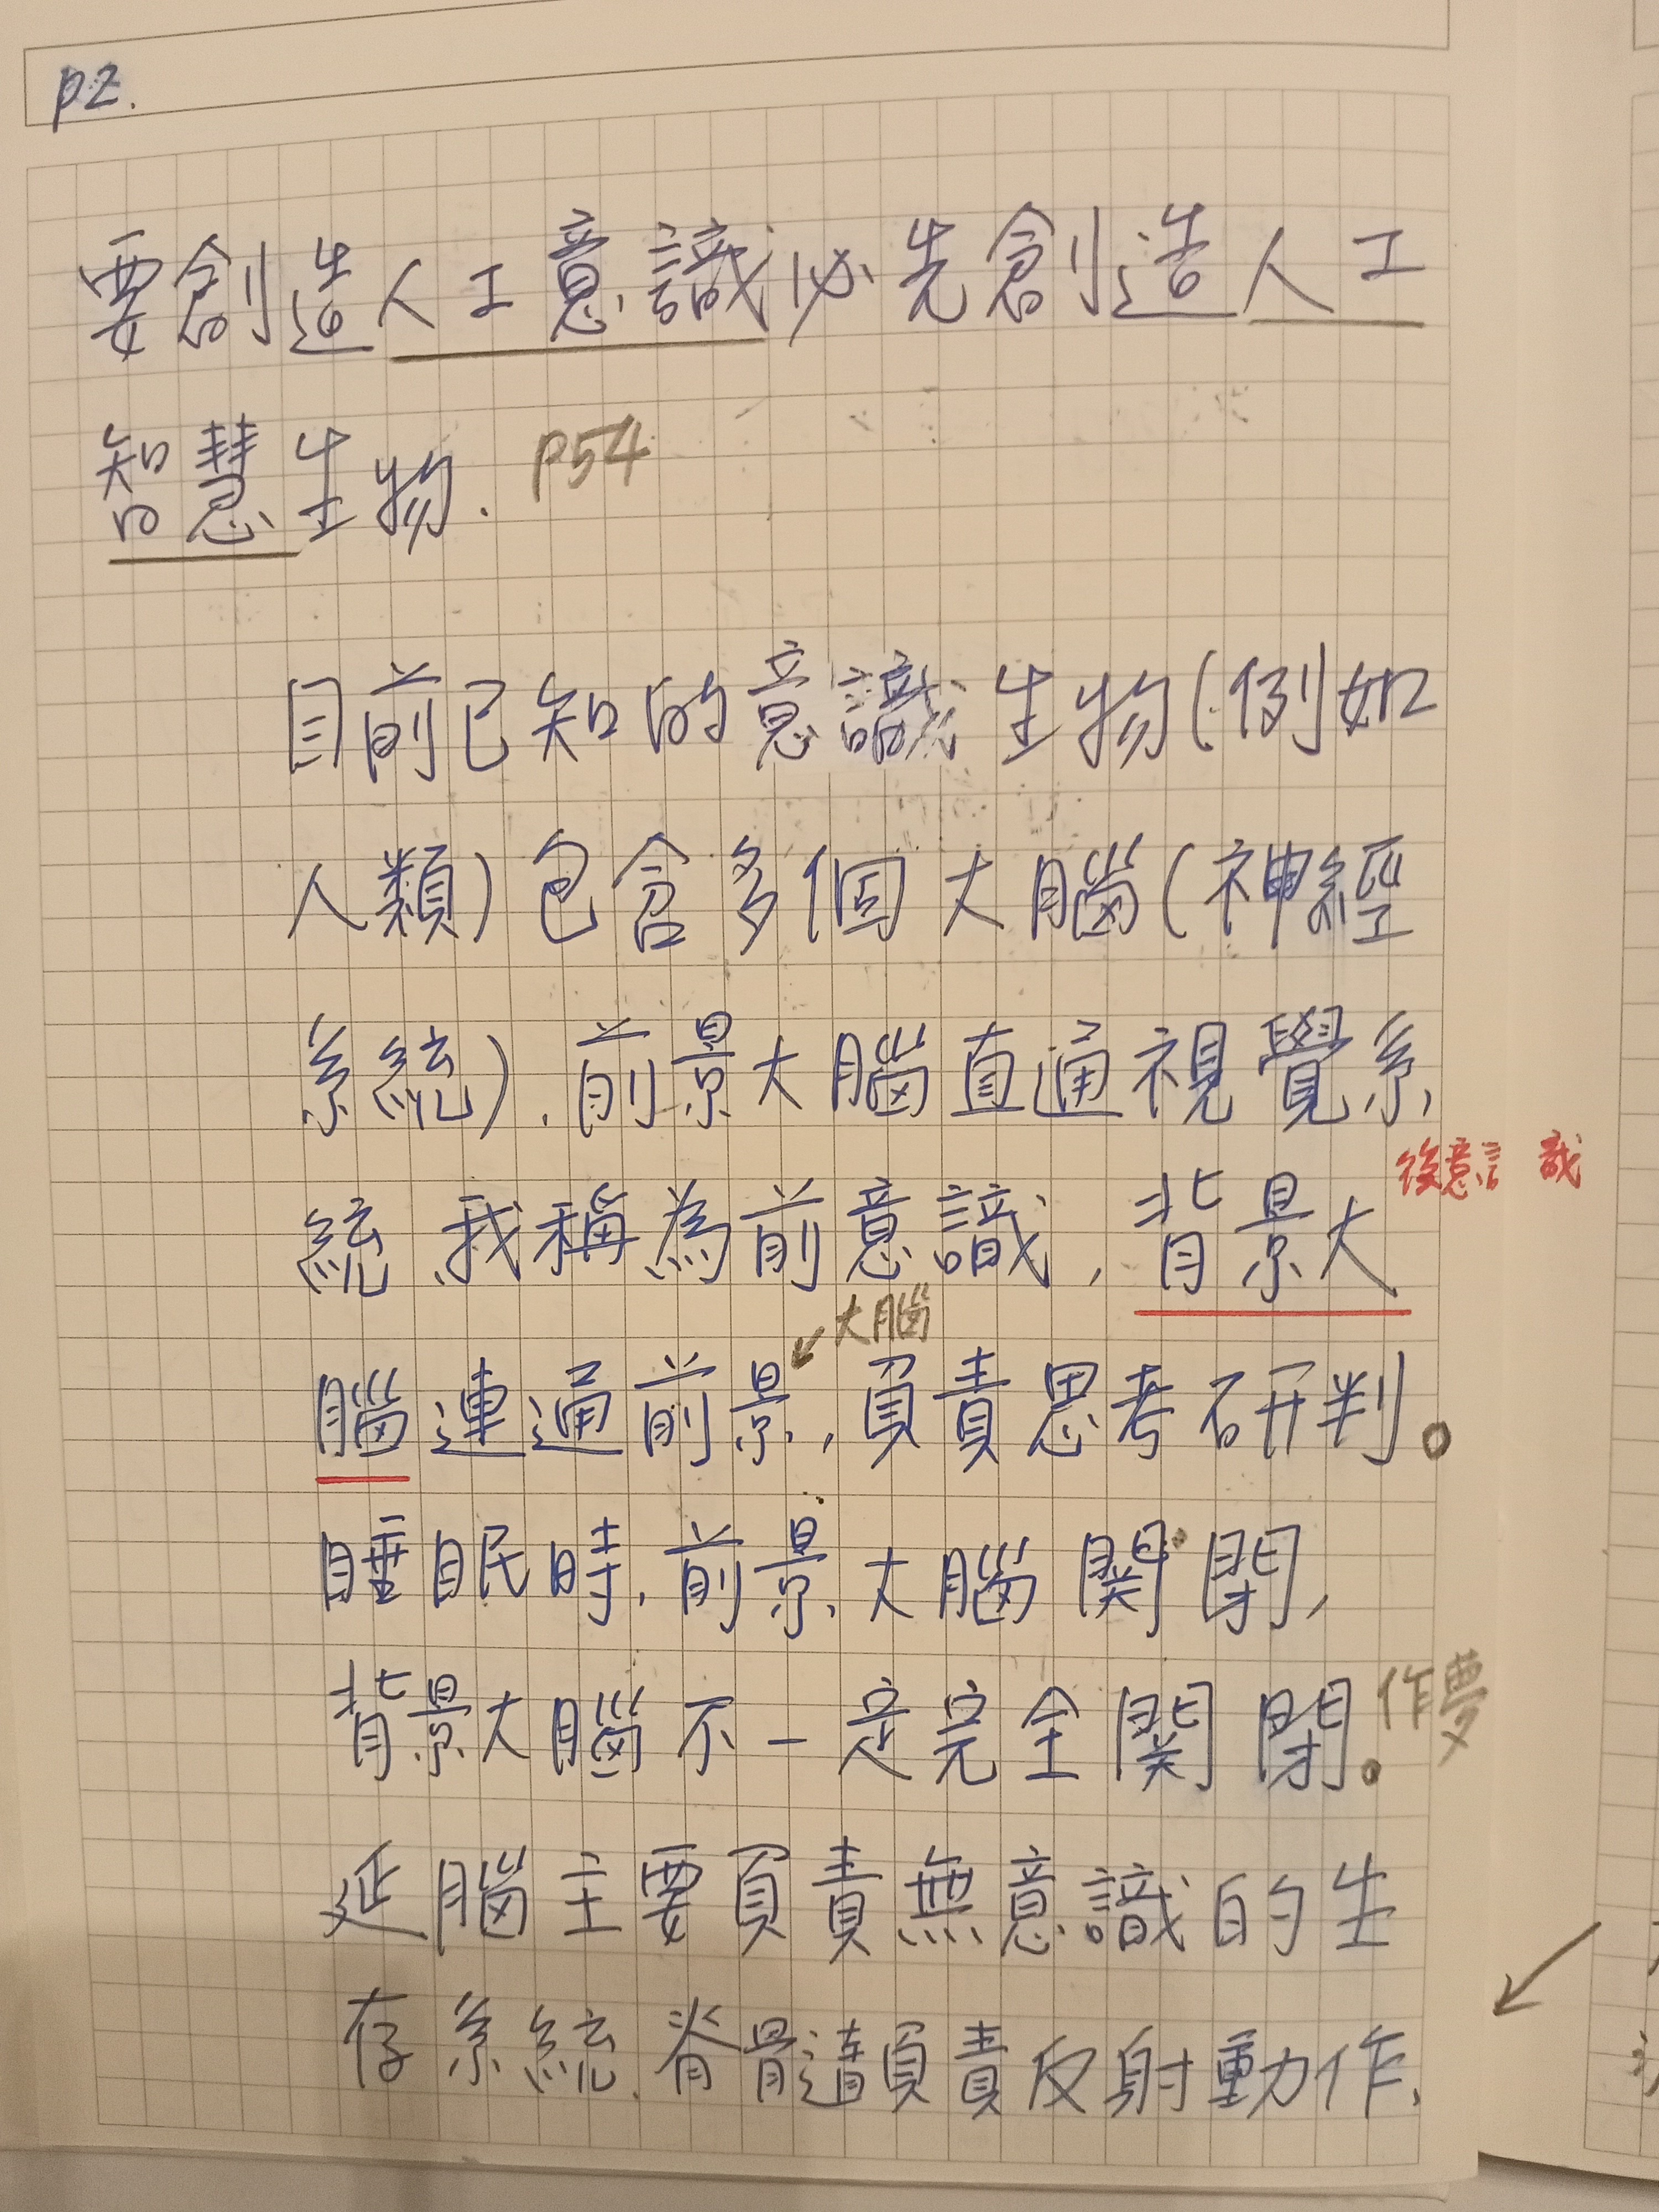 p2.
要創造人工意識必先創造人工
智慧生物. P54
目前已知的意識生物(例如
人類)包含多個大腦(神經
系統).前景大腦直通視覺系
後意識
統,我稱為前意識,背景大
大腦
腦連通前景,負責思考研判。
睡眠時,前景大腦關閉,
背景大腦不一定完全關閉。作夢
延腦主要負責無意識的生
存系統.脊髓負責反射動作,